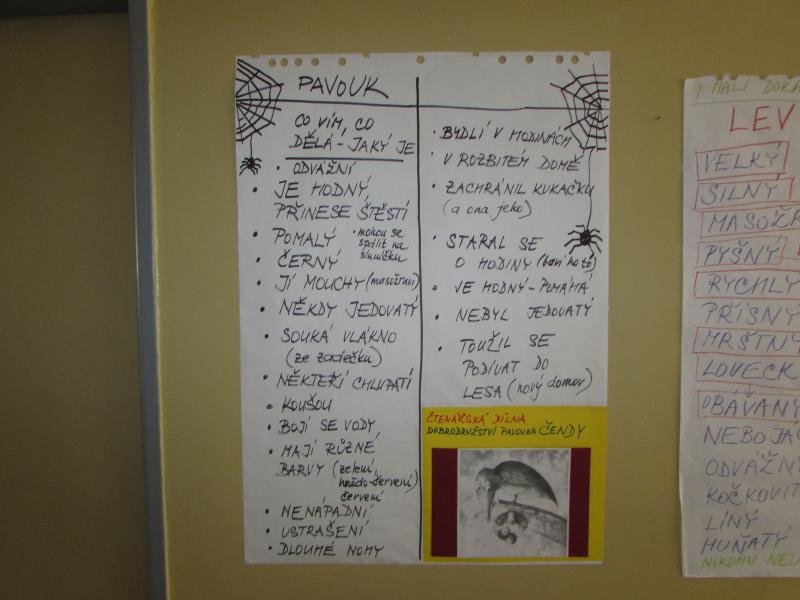 PAVOUK
CO VÍM, CO
DĚLÁ - JAKÝ JE
• ODVÁŽNÍ
• JE HODNÝ,
PŘINESE ŠTĚSTÍ
• POMALÝ
• mohou se
spálit na
sluníčku
• ČERNÝ
• JÍ MOUCHY (masožraví)
• NĚKDY JEDOVATÝ
• SOUKÁ VLÁKNO
(ze zadečku)
• NĚKTEŘÍ CHLUPATÍ
• KOUŠOU
• BOJÍ SE VODY
• MAJÍ RŮZNÉ
BARVY (zelení,
hnědo-červení)
červení
• NENÁPADNÍ
• USTRAŠENÍ
• DLOUHÉ NOHY
• BYDLÍ V HODINÁCH
• V ROZBITÉM DOMĚ
• ZACHRÁNIL KUKAČKU
(a ona jeho)
• STARAL SE
O HODINY (baví ho to)
• VE HODNÝ - POMÁHÁ
• NEBYL JEDOVATÝ
• TOUŽIL SE
PODÍVAT DO
LESA (nový domov)
ČTENÁŘSKÁ DÍLNA
DOBRODRUŽSTVÍ PAVOUKA ČENDY
I MALÍ DOKÁ
LEV
VELKÝ
SILNÝ
MASOŽR
PYŠNÝ
RYCHLÝ
PŘÍSNÝ
MRŠTNÝ
LOVECK
OBÁVANÝ
NEBOJÁ
ODVÁŽN
KOČKOVIT
LÍNÝ
HUŇATÝ
NIKOHU NEU